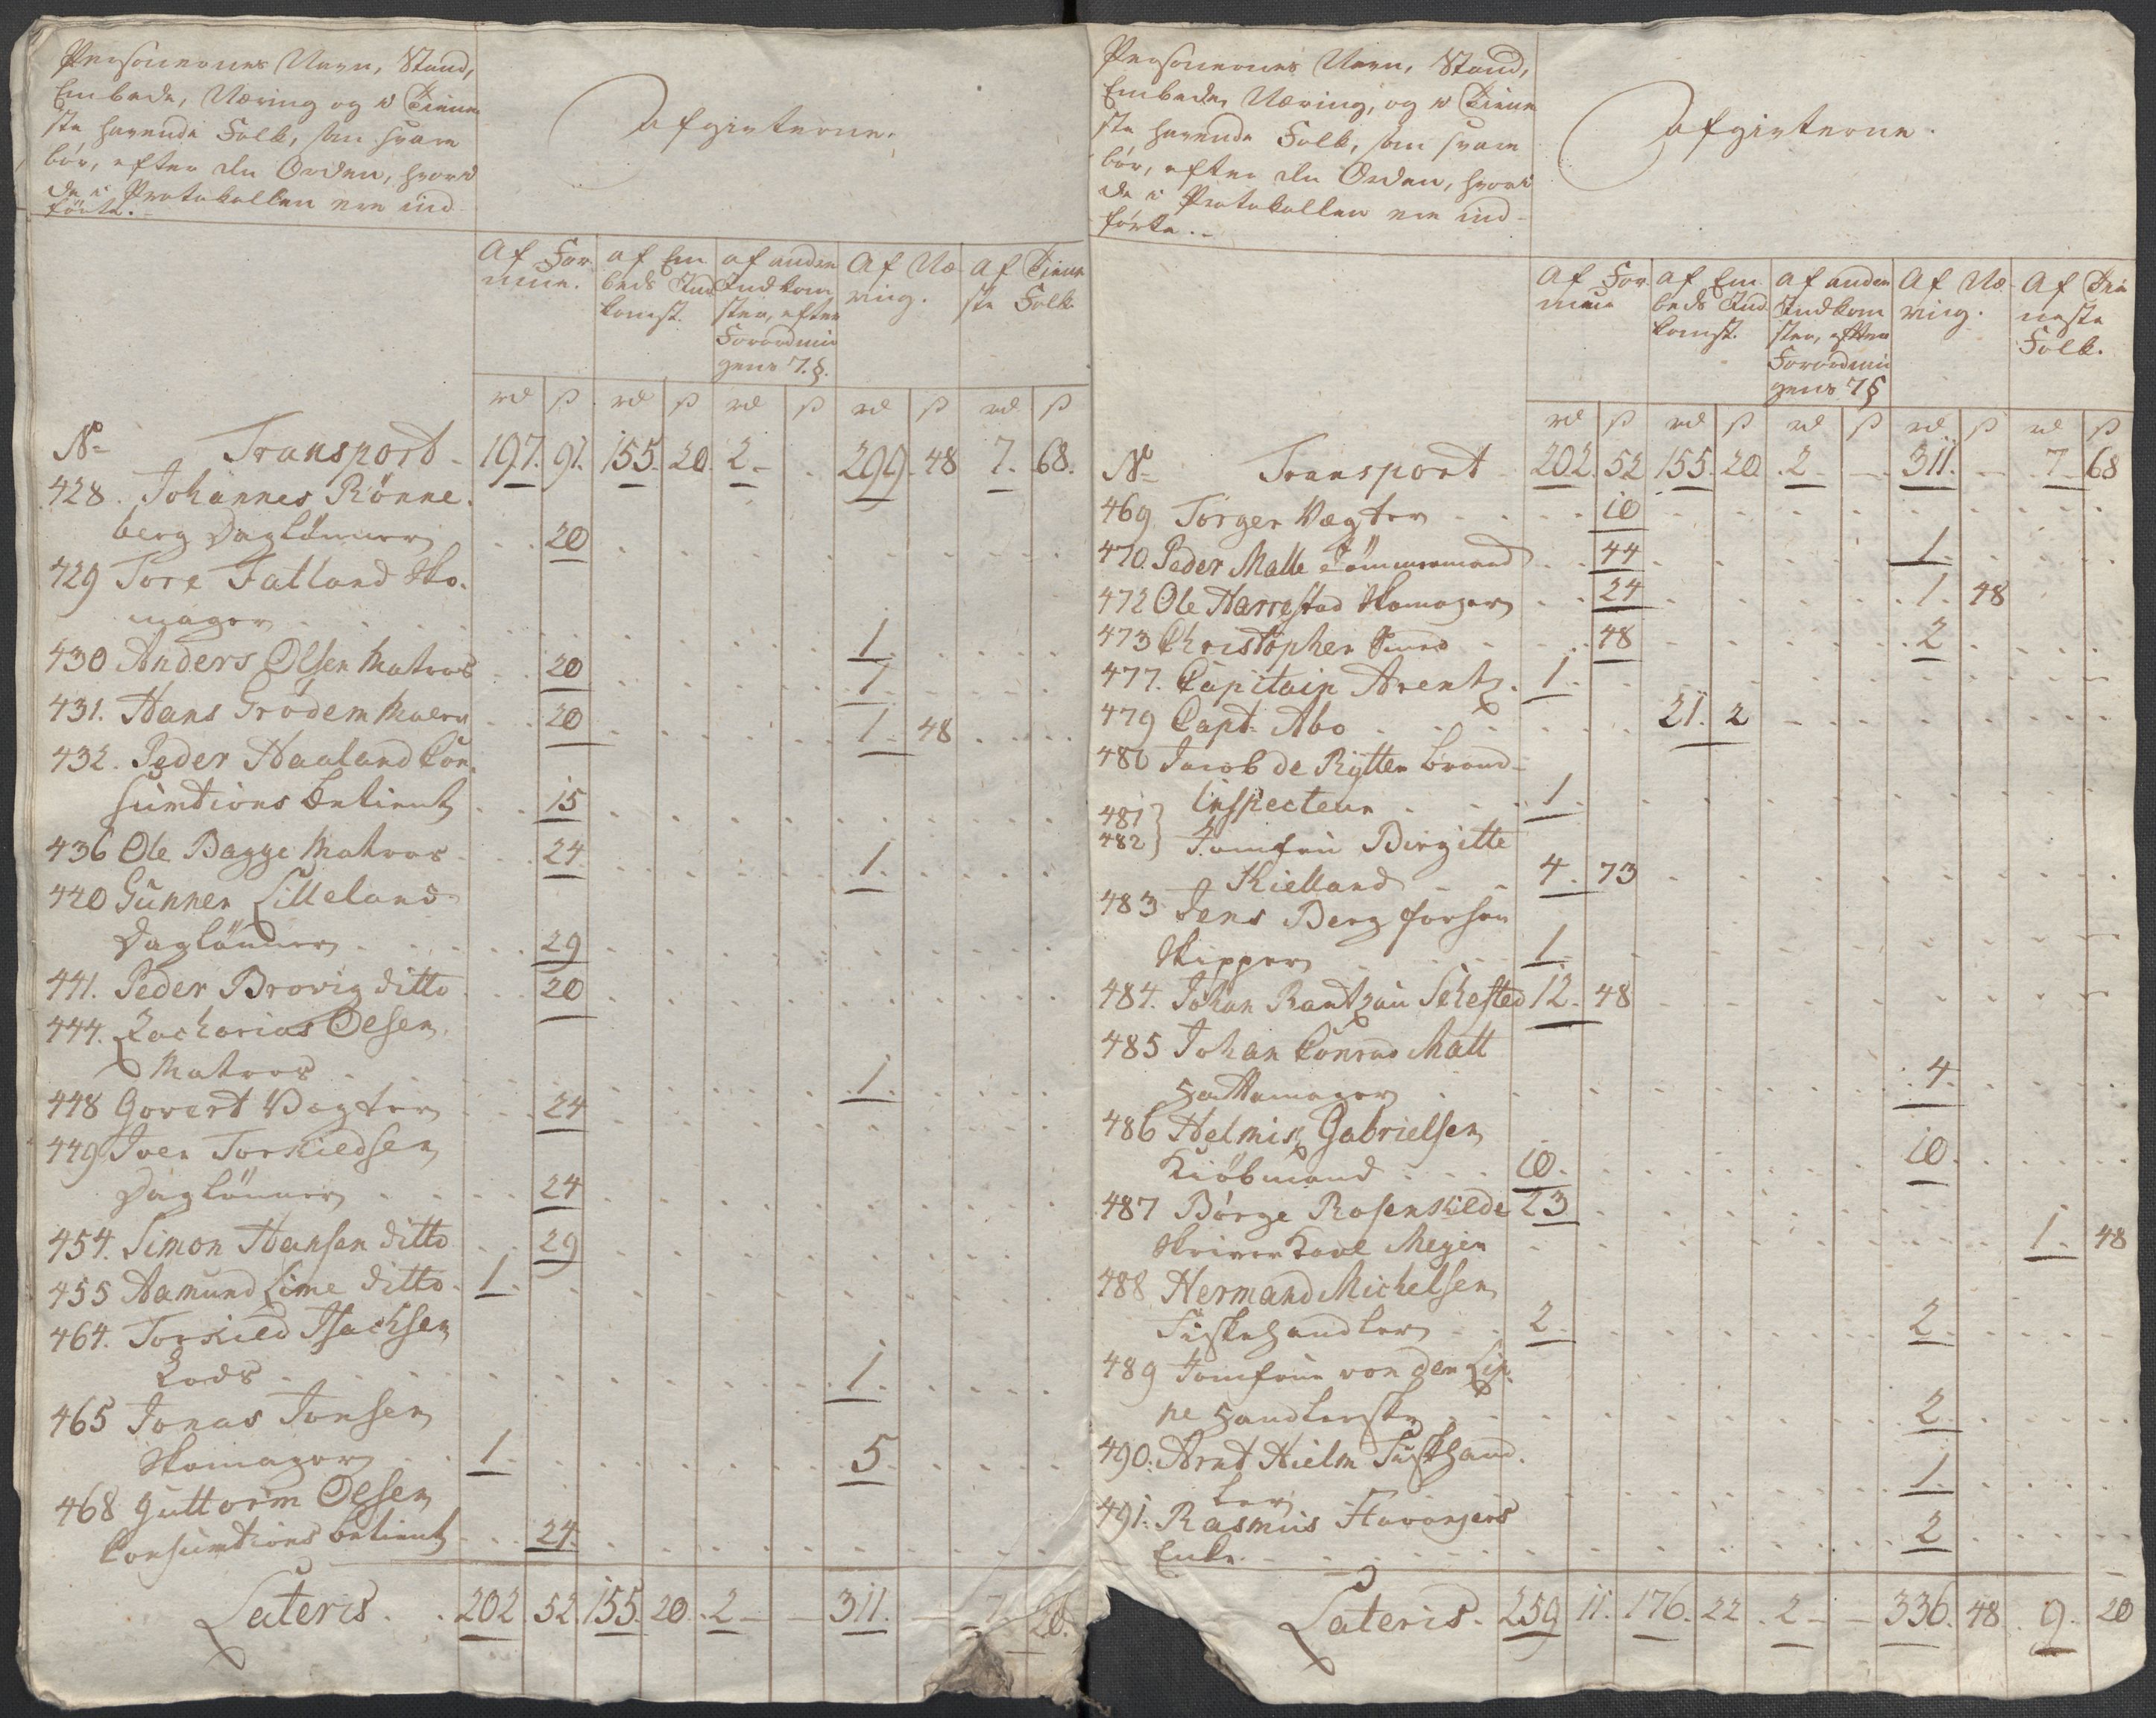 Personernes Navn, Stand,
Embede, Næring og i Tiene
ste havende Folk, som svare
bør, efter den Orden, hvori
de i Protokollen ere ind
førte.
Afgivterne.
Af For
mue.
af Em
beds Ind
komst.
af anden
Indkom
ster, efter
Forordnin
gens 7.§.
Af Næ
ring.
Af Tiene
ste Folk
rd ß rd ß rd ß rd ß rd ß
No Transport 197. 91. 155. 20. 2 - . 299. 48 7. 68.
428. Johannes Rönne.
berg Daglönner 20
729 Tore Fatland Sko.
mager 1
430 Anders Olsen Matros 20 1
431. Hans Grödem Muern 20 1. 48
432. Peder Haaland Con.
sumtions betient 15
436 Ole Bagge Matros 24 1.
440 Gunner Lilleland
Daglönner 29
441. Peder Brovig ditto 20
444. Zacharias Olsen.
Matros 1.
448 Govert Vegter 24
449 Iver Torkieldsen
Daglönner 24
454. Simon Hansen ditto 29
455 Aamund Lime ditto. 1.
464. Torkield Isachsen
Lods 1.
465 Jonas Jonsen
Skomager 1. 5.
468 Guttorm Olsen
Consumtions betient 24.
Lateris. 202. 52. 155. 20. 2 - - 311. - 7 20.
Personernes Navn, Stand,
Embede, Næring, og i Tiene
ste havende Folk, som svare
bør, efter den Orden, hvori
de i Protokollen ere ind-
førte.
Afgivterne.
Af For
mue
af Em
beds Ind
komst.
af anden
Indkom
ster, efter
Forordnin
gens 7 §
Af Næ
ring.
Af Tie
neste
Folk.
rd ß rd ß rd ß rd ß rd ß
No Transport 202. 52 155. 20. 2 - - 311. - 7 68
469 Torger Vægter 10
470. Peder Malle Tömmermand 44 1.
472 Ole Harrestad Skomager 24 1. 48
473 Christopher Smed 48 2
477. Capitain Arentz. 1.
479 Capt. Abo 21. 2
480 Jacob de Rytter brand-
Inspecteur 1.
481
482 } Jomfru Birgitte
Kielland 4. 73
483 Jens Berg forhen
Skipper 1
484. Johan Rantzau Sehested 12. 48
485 Johan Conrad Matt
Hattemager 4.
486 Helmik Gabrielsen
Kiöbmand 10. 10.
487 Börge Rosenkilde 23
Skriver Karl Meyer 1. 48
488 Hermand Michelsen
Fiskehandler 2. 2.
489 Jomfrue von der Lip.
pe Handlerske 2.
490. Arnt Hielm Fiskhand.
ler 1.
491. Rasmus Stavangers
Enke 2
Lateris. 259 11. 176. 22. 2 - - 336. 48. 9. 20